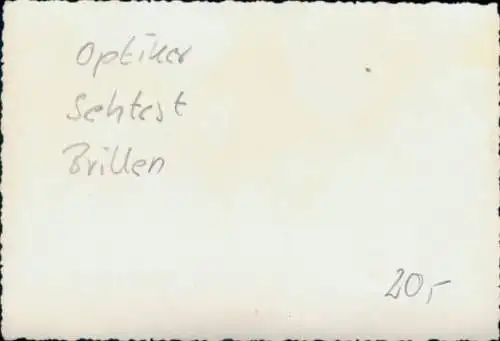 Optiker
Sehtest
Brillen
20,-